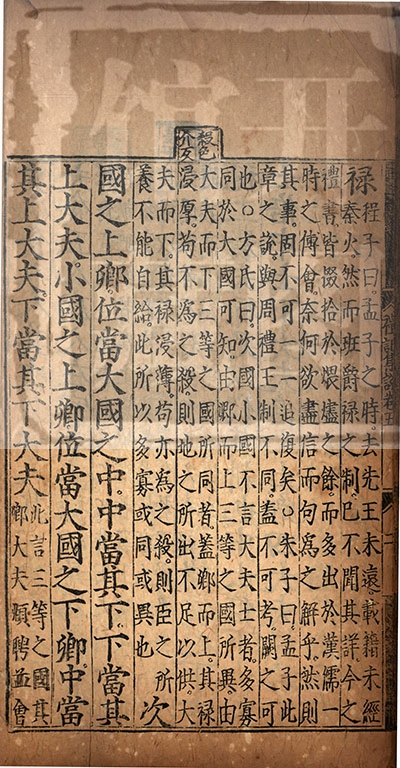 殺色
介反
禮記集說卷五
祿程子曰孟子之時去先王未遠載籍未經
秦火然而班爵祿之制已不聞其詳今之
禮書皆掇拾於煨燼之餘而多出於漢儒一
時之傅會奈何欲盡信而句為之解乎然則
其事固不可一一追復矣○朱子曰孟子此
章之說與周禮王制不同葢不可考闕之可
也○方氏曰次國小國不言大夫士者多寡
同於大國可知由卿而上三等之國所異由
大夫而下三等之國所同者蓋卿而上其祿
浸厚苟不為之殺則地之所出不足以供大
夫而下其祿浸薄苟亦為之殺則臣之所
養不能自給此所以多寡或同或異也
次
國之上卿位當大國之中中當其下下當其
上大夫小國之上卿位當大國之下卿中當
其上大夫下當其下大夫
此言三等之國其
卿大夫頫聘並會